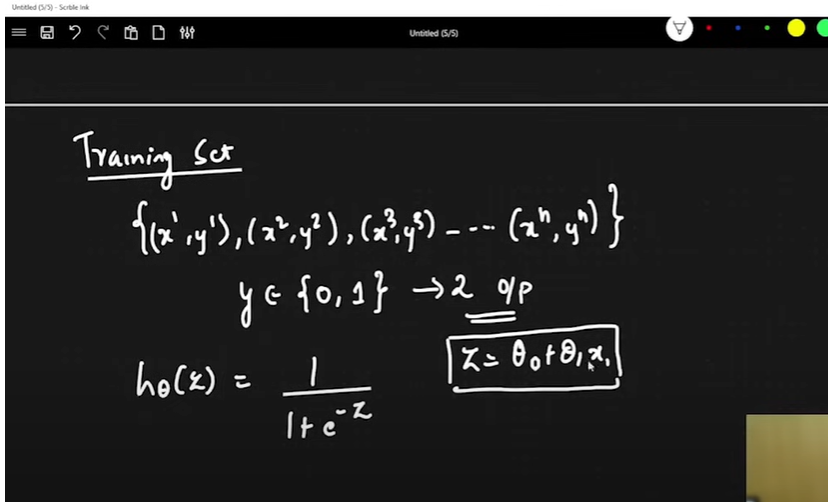 Untitled (5/5) - Scrble Ink
Untitled (5/5)
Training Set
{(x¹,y¹),(x²,y²),(x³,y³) ----- (xⁿ,yⁿ)}
y ∈ {0,1} → 2 o/p
z = θ₀+θ₁x₁
hθ(z) = 1/(1+e^-z)